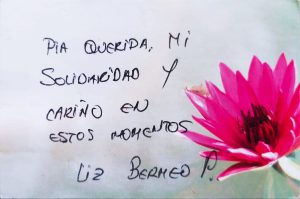 Pia querida, mi
solidaridad y
cariño en
estos momentos
Liz Bermeo P.